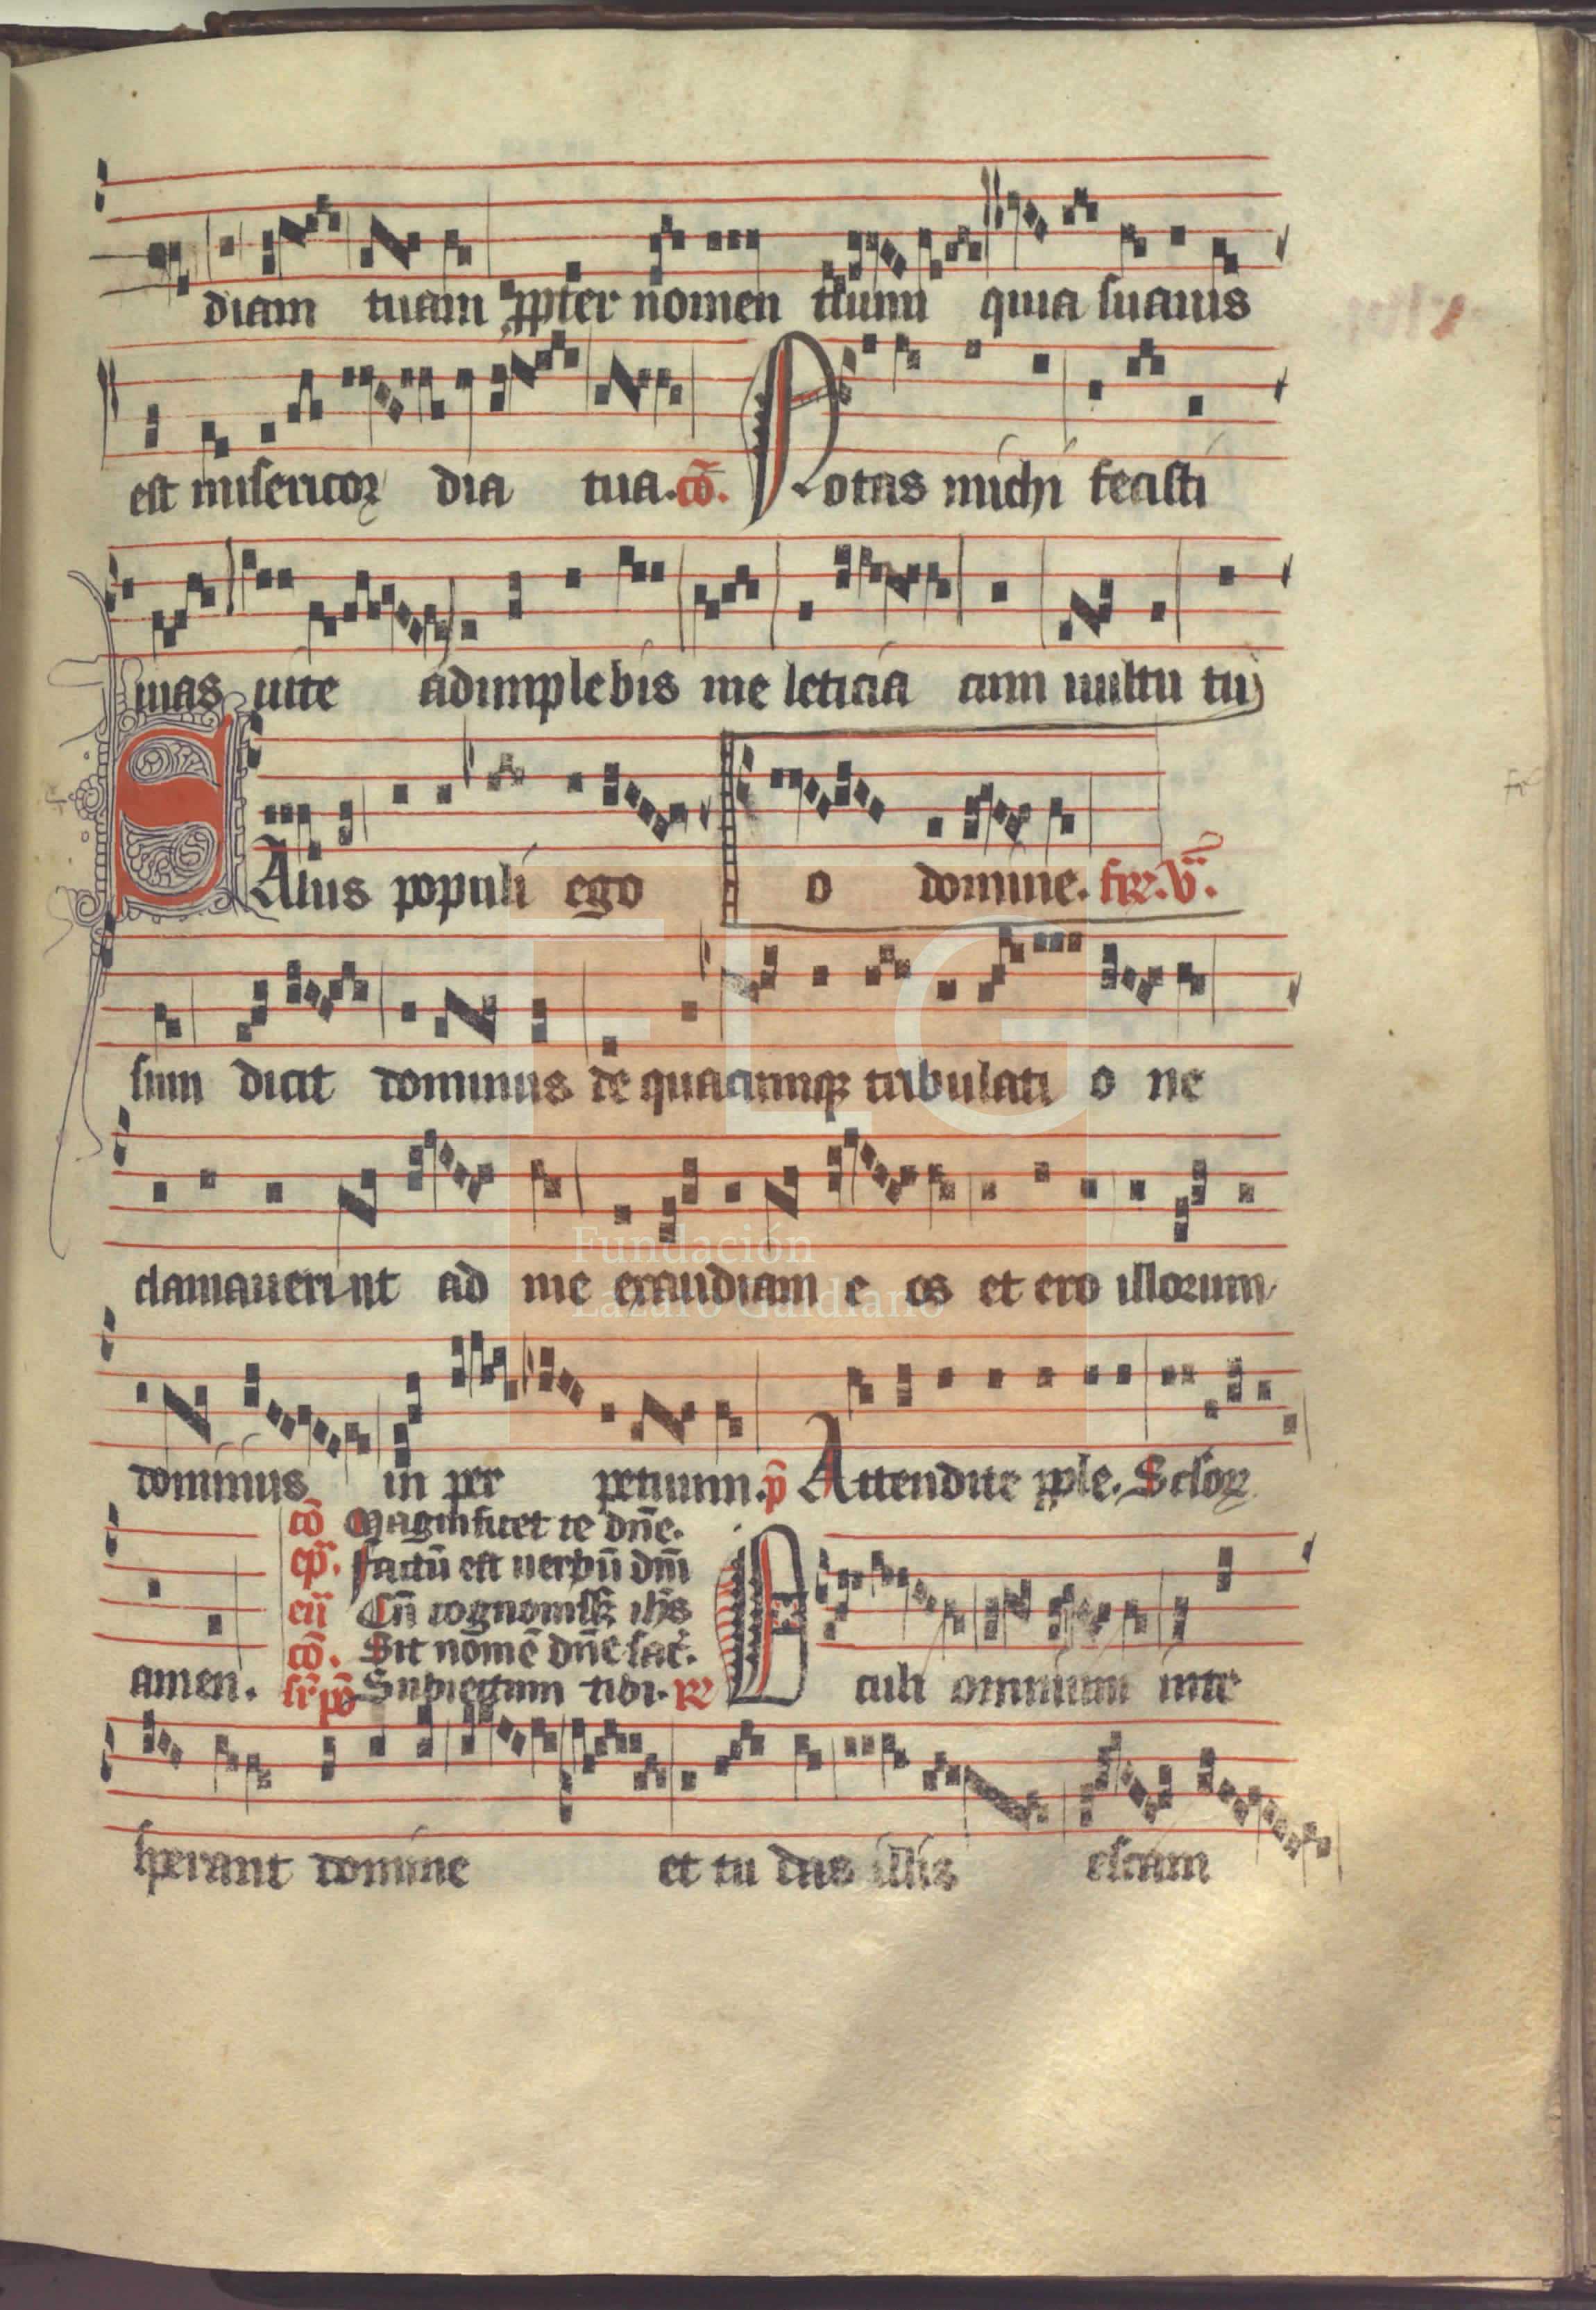 diam tuam ꝓpter nomen tuum quia suauis
est misericoꝛ dia tua. cō. Notas michi fecisti
uias uite adimplebis me leticia cum uultu tu
SAlus populi ego o domine. fer. v.
sum dicit dominus de quacumqꝫ tribulati o ne
clamauerint ad me exaudiam e os et ero illorum
dominus in per petuum. p̄ Attendite pple. Sclꝝ
cō Magnificet te dn̄e.
ep̄. factū est uerbū dn̄i
Cū
cō. Sit nomē dn̄e
amen. Subiectum tibi. R̄ Oculi omnium inte
sperant domine et tu das illis escam
FLG
Fundación
Lázaro Galdiano